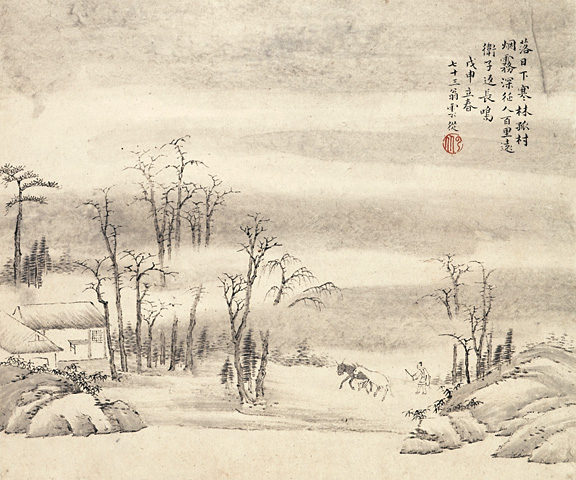 落日下寒林孤村
烟霧深征人百里遠
衛子返長鳴
戊申立春
七十三翁